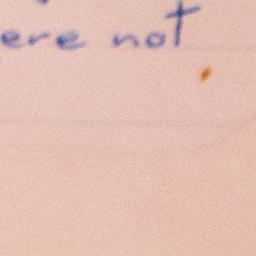 ere not